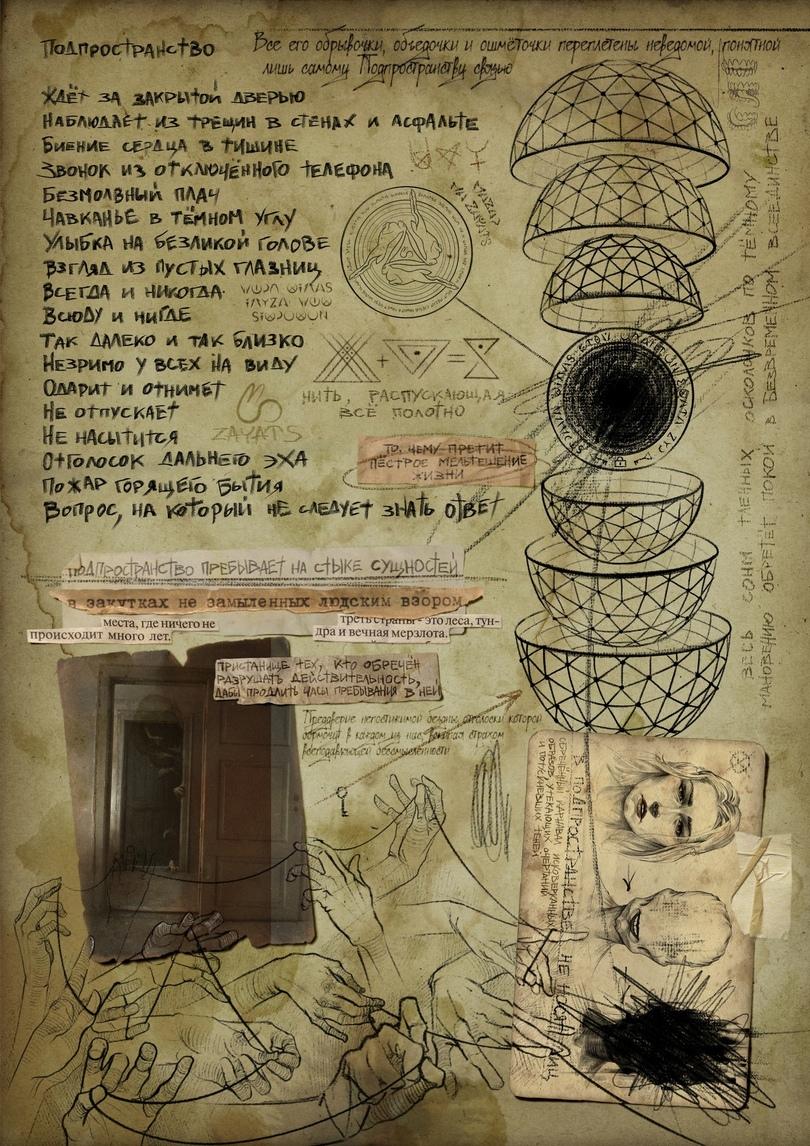 Подпространство
Все его обрывочки, объедочки и ошмёточки переплетены неведомой, понятной
лишь самому Подпространству связью
Ждёт за закрытой дверью
Наблюдает из трещин в стенах и асфальте
Биение сердца в тишине
Звонок из отключённого телефона
Безмолвный плач
Чавканье в тёмном углу
Улыбка на безликой голове
Взгляд из пустых глазниц
Всегда и никогда
Всюду и нигде
Так далеко и так близко
Незримо у всех на виду
Одарит и отнимет
Не отпускает
Не насытится
Отголосок дальнего эха
Пожар горящего бытия
Вопрос, на который не следует знать ответ
+
=
Нить, распускающая
всё полотно
ZAYATS
То, чему претит
пёстрое мельтешение
жизни
Подпространство пребывает на стыке сущностей
в закутках не замыленных людским взором,
места, где ничего не
происходит много лет.
треть страны - это леса, тун-
дра и вечная мерзлота.
Пристанище тех, кто обречён
разрушать действительность,
дабы продлить часы пребывания в ней
Преддверие непостижимой бездны, отголоски которой
в каждом из нас,
Весь сонм тленных осколков по тёмному
мановению обретёт покой в безвременном всеединстве
В Подпространстве не носят лиц